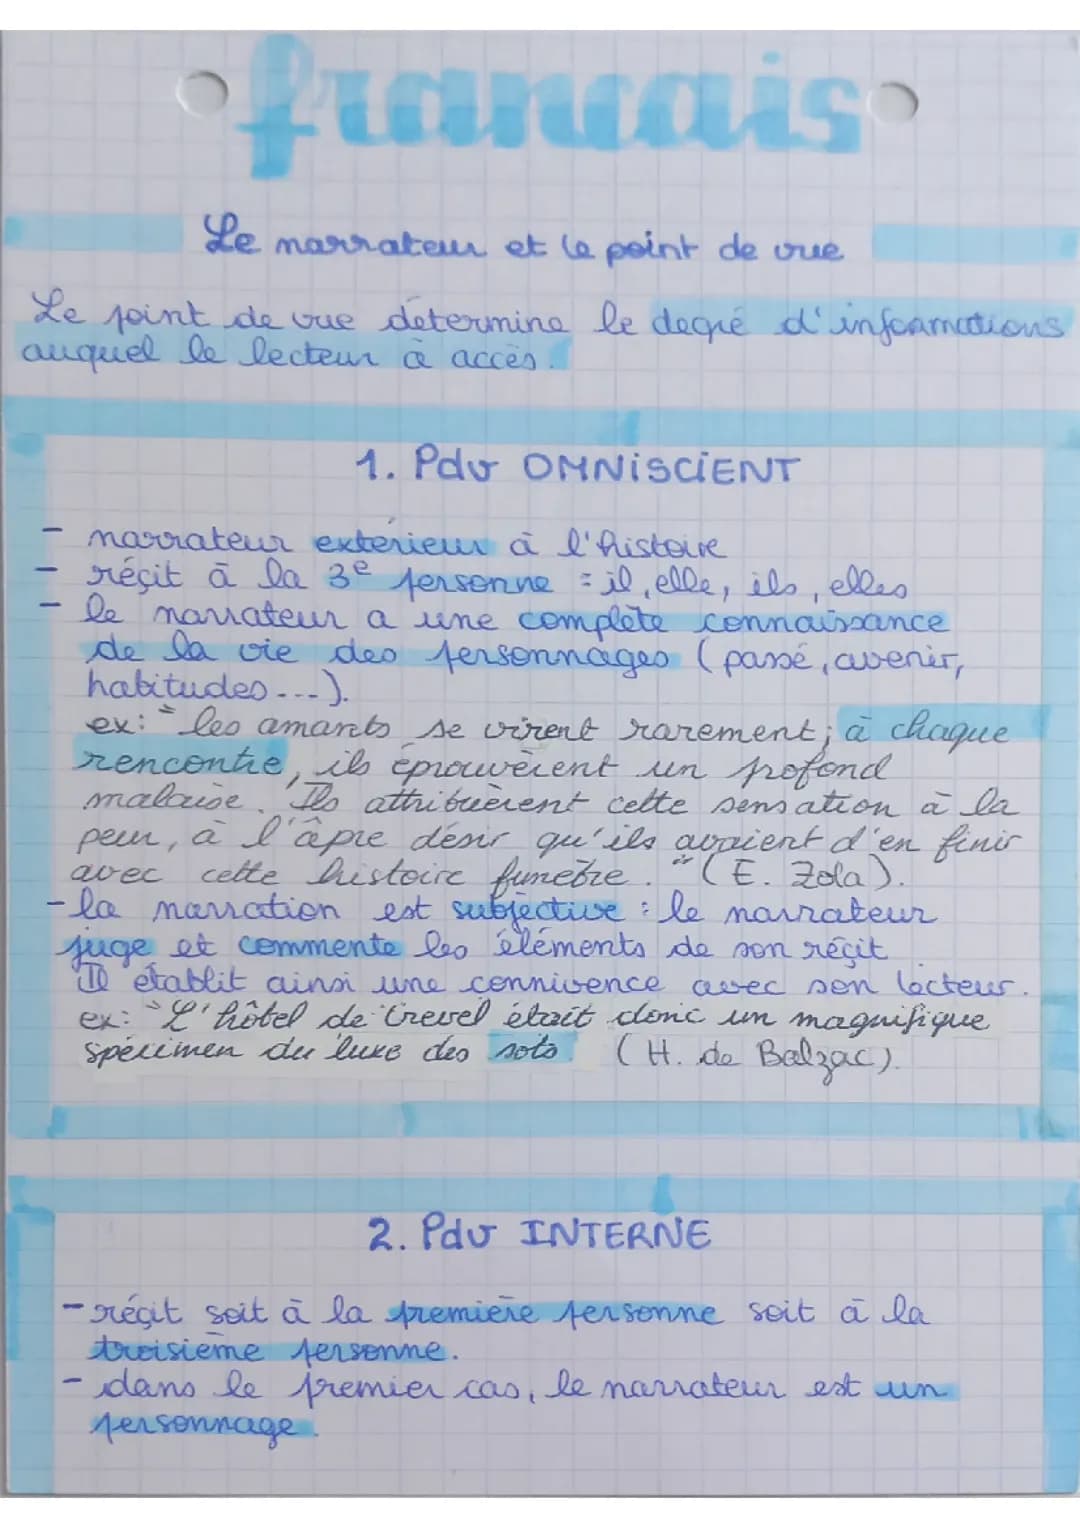 francais
Le narrateur et le point de vue
Le point de vue détermine le degré d'informations
auquel le lecteur à accès.
1. Pdv OMNiSCiENT
- narrateur extérieur à l'histoire
- récit à la 3e personne = il, elle, ils, elles
- le narrateur a une complète connaissance
de la vie des personnages (passé, avenir,
habitudes...).
ex: "les amants se virent rarement; à chaque
rencontre, ils éprouvèrent un profond
malaise. Ils attribuèrent cette sensation à la
peur, à l'âpre désir qu'ils avaient d'en finir
avec cette histoire funèbre." (E. Zola).
- la narration est subjective : le narrateur
juge et commente les éléments de son récit
Il établit ainsi une connivence avec son lecteur.
ex: "L'hôtel de Crevel était donc un magnifique
spécimen du luxe des sots (H. de Balzac).
2. Pdv INTERNE
- récit soit à la première personne soit à la
troisième personne.
- dans le premier cas, le narrateur est un
personnage.